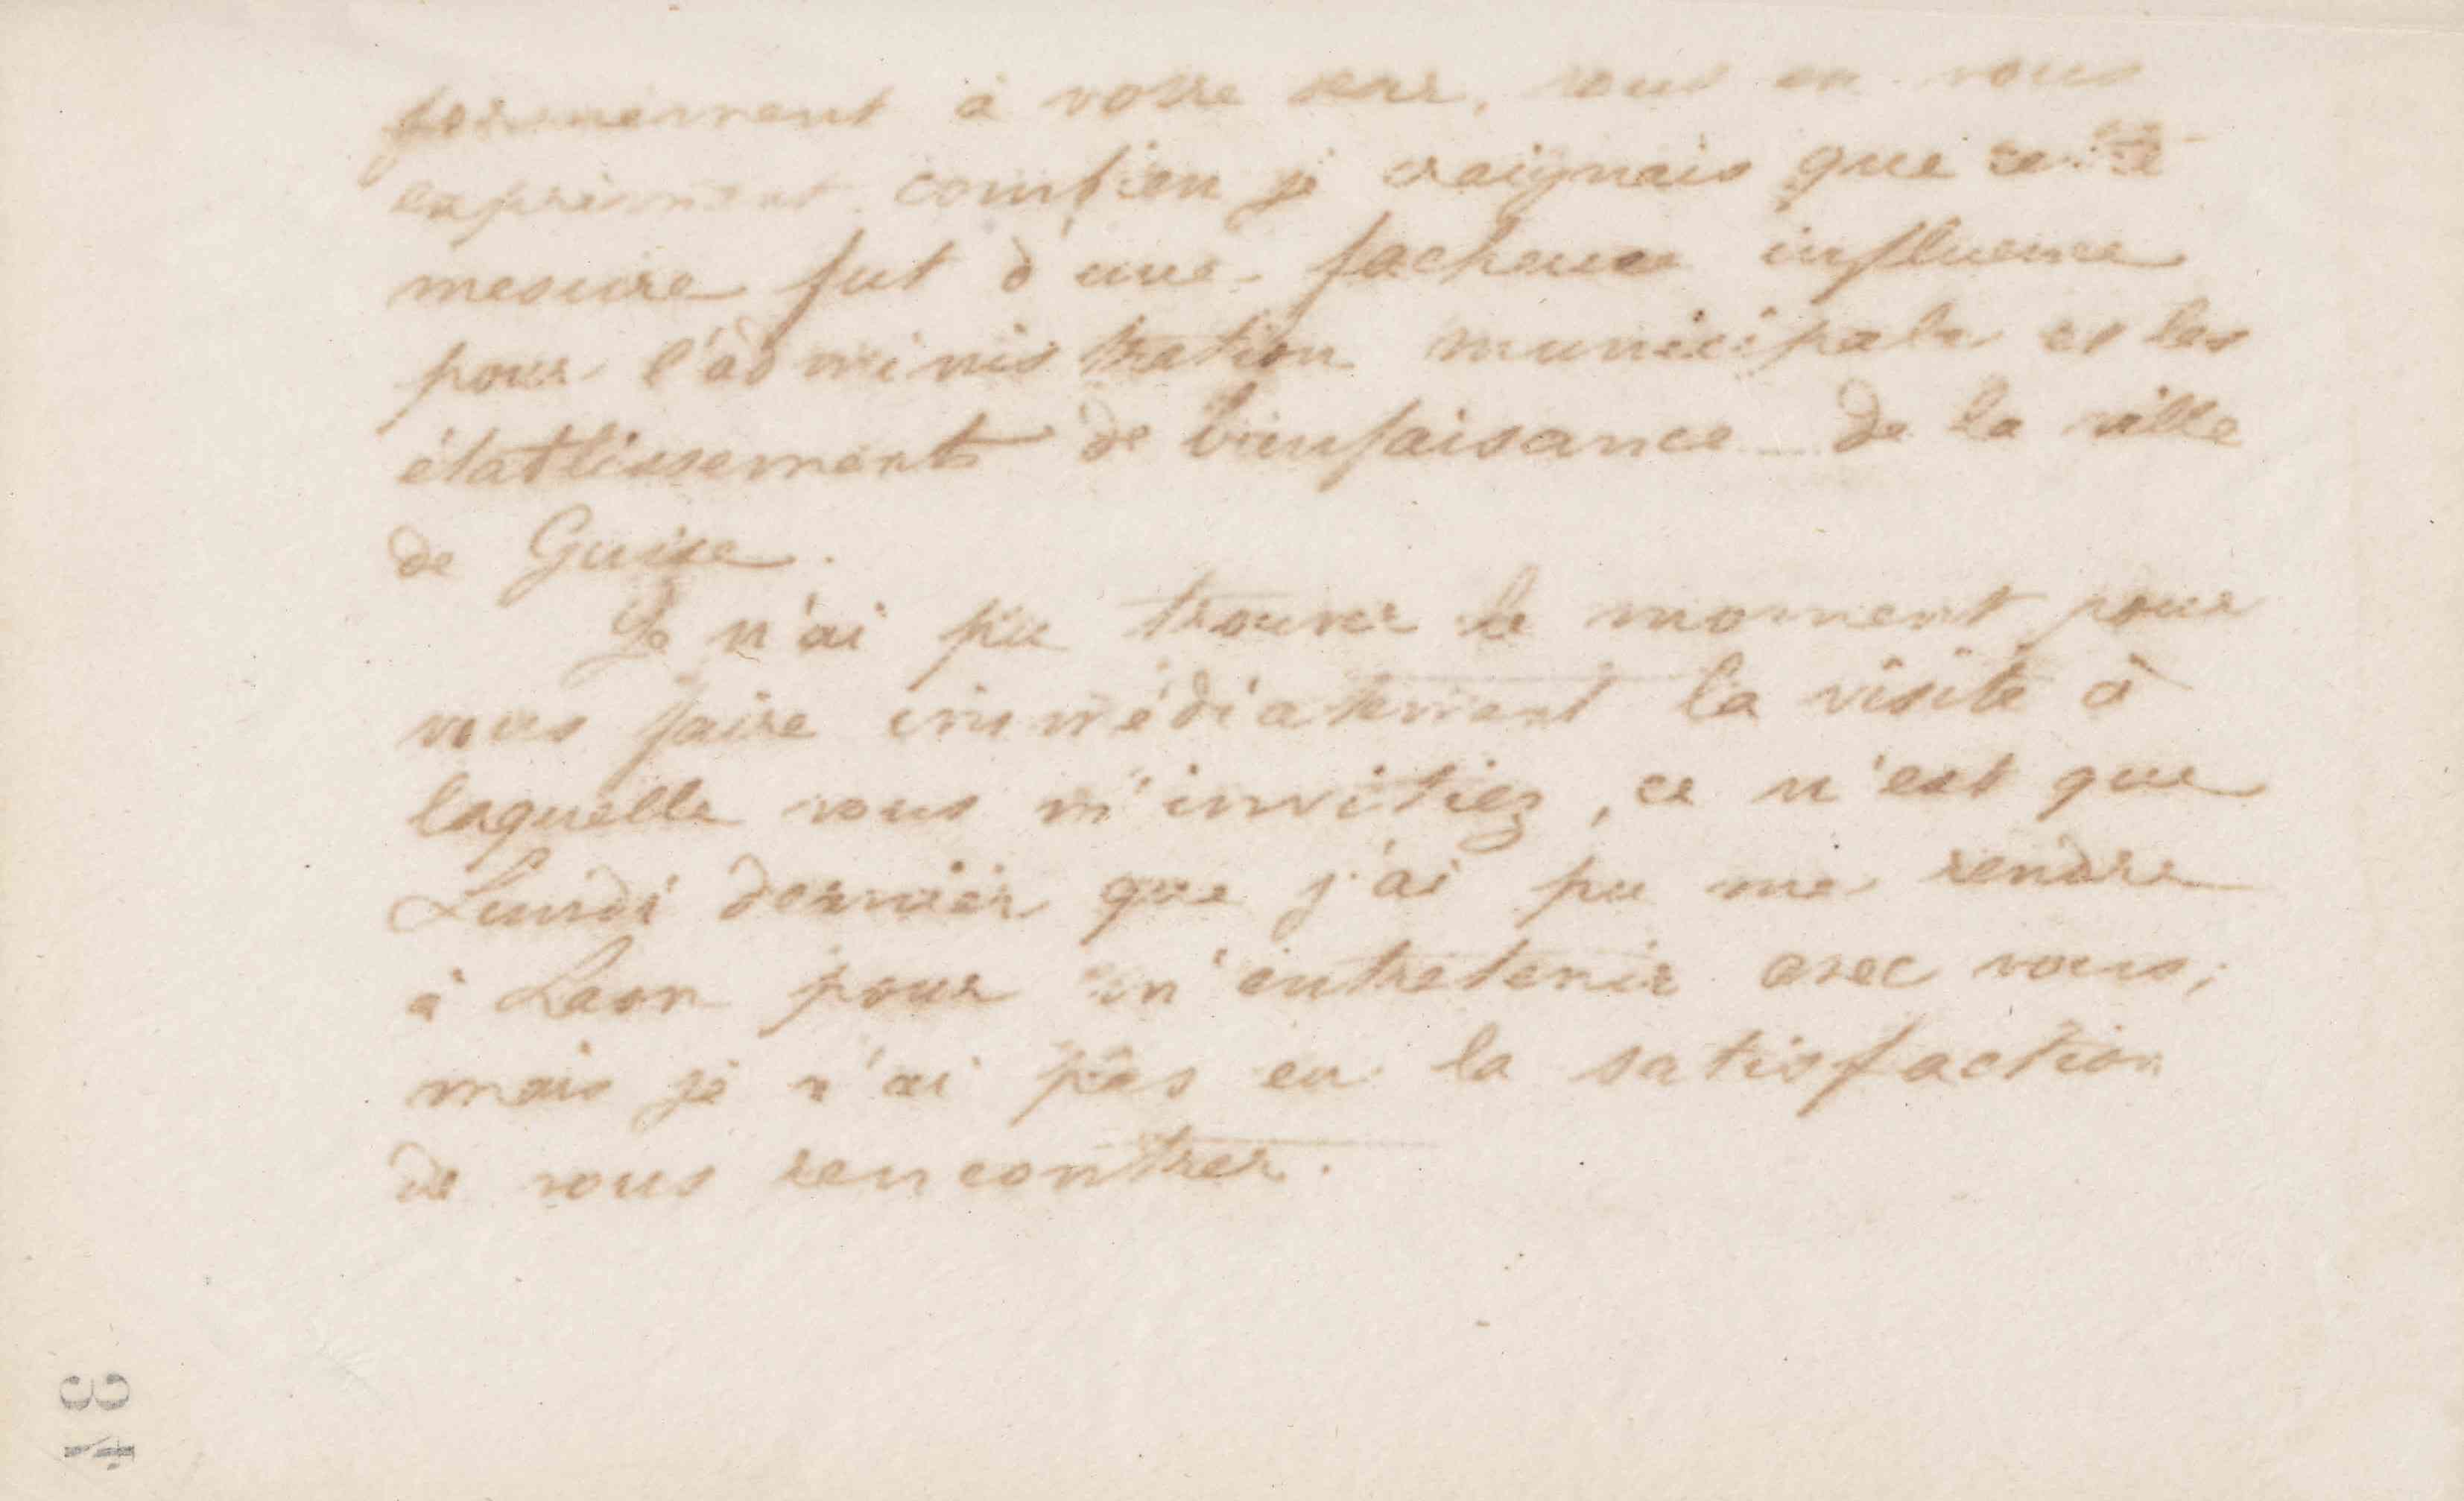 à votre tout en vous
exprimant combien je craignais que cette
mesure fut d'une facheuse influence
pour l'administration municipale et les
établissements de bienfaisance de la ville
de Guise.
Je n'ai pu trouver le moment pour
vous faire immédiatement la visite à
laquelle vous m'invitiez, ce n'est que
Lundi dernier que j'ai pu me rendre
à Laon pour m'entretenir avec vous;
mais je n'ai pas eu la satisfaction
de vous rencontrer.
34